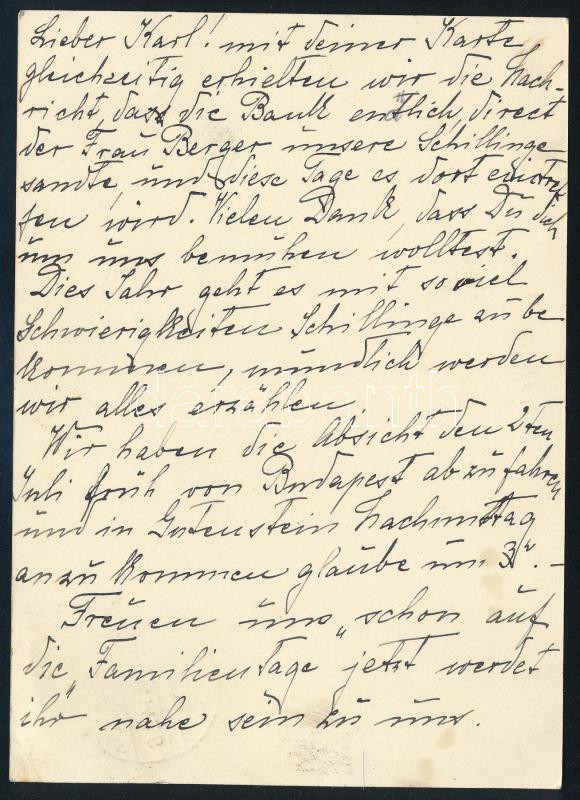 Lieber Karl! mit deiner Karte
gleichzeitig erhielten wir die Nach-
richt, dass die Bank entlich, direct
der Frau Berger unsere Schillinge
sandte, und diese Tage es dort eintref
fen wird. Vielen Dank, dass Du dich
um uns bemühen wolltest.
Dies Jahr geht es mit soviel
Schwierigkeiten Schillinge zu be
kommen, mündlich werden
wir alles erzählen.
Wir haben die Absicht den 2ten
Juli früh von Budapest abzufahren
und in Gutenstein Nachmittag
anzukommen glaube um 3h. -
Freuen uns schon auf
die "Familientage" jetzt werdet
ihr nahe sein zu uns.
darabanth